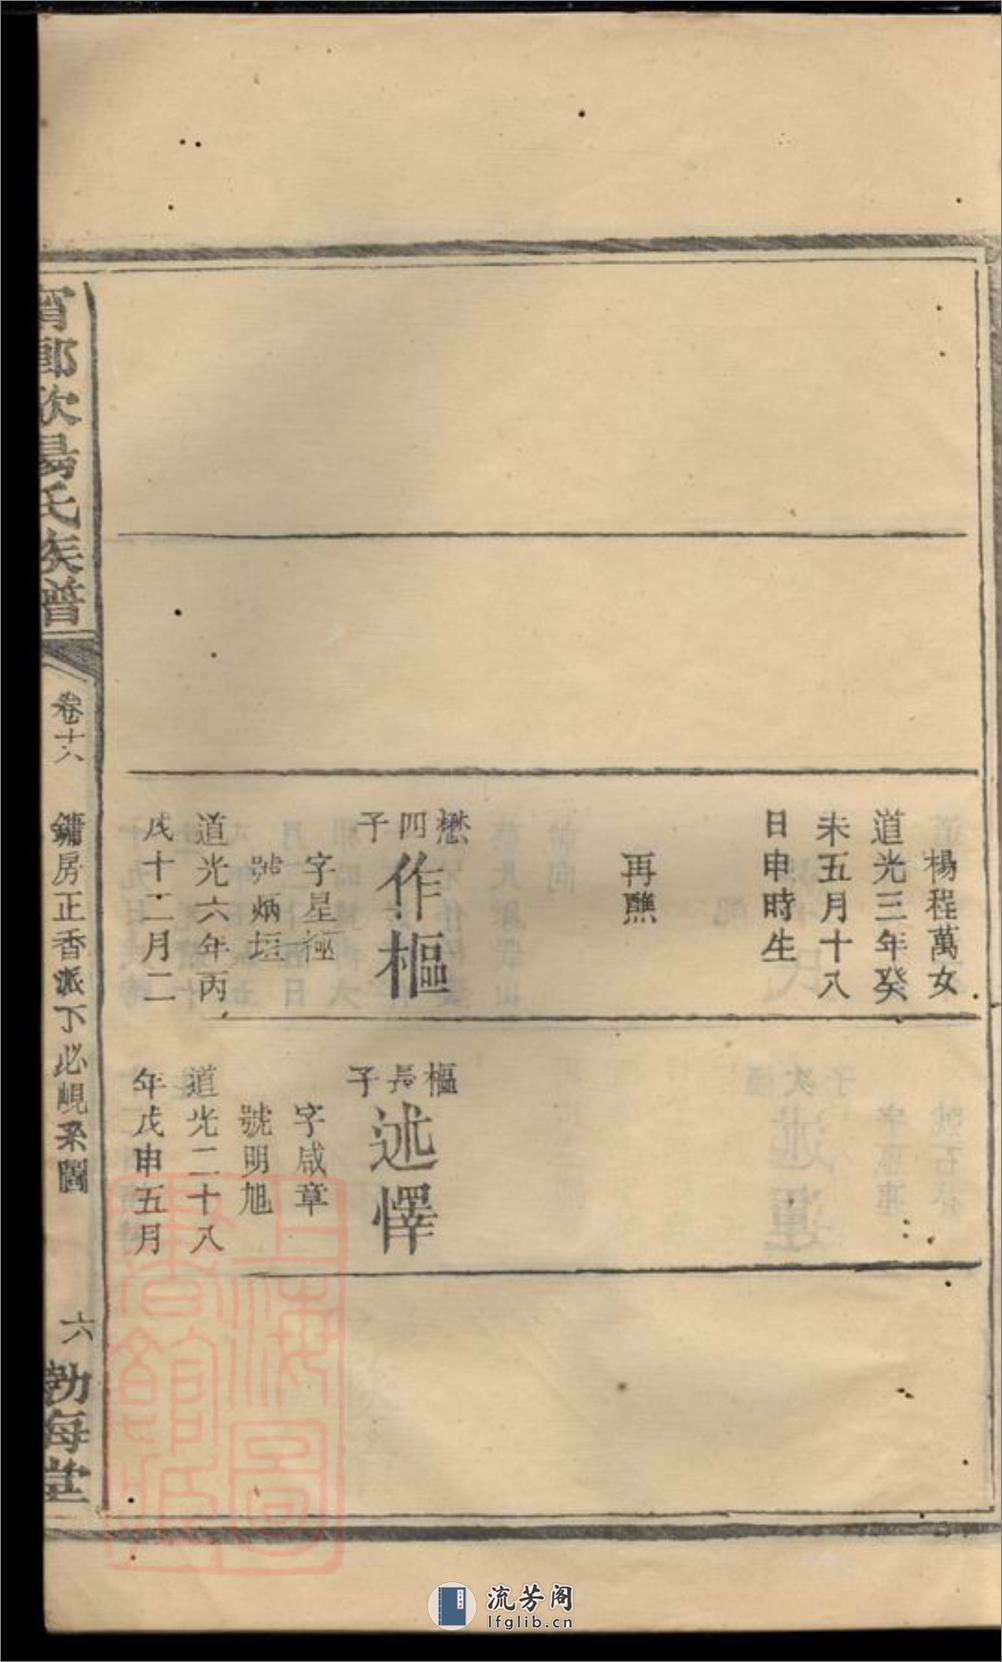 楊程萬女
道光三年癸
未五月十八
日申時生
再醮
懋四子
作樞
字星極
號炳垣
道光六年丙
戌十二月二
樞長子
述懌
字咸章
號明旭
道光二十八
年戊申五月
歐陽氏族譜
卷十八
鏞房正香派下必峴系圖
六
勃海堂
上海圖
書館藏
流芳阁
lfglib.cn